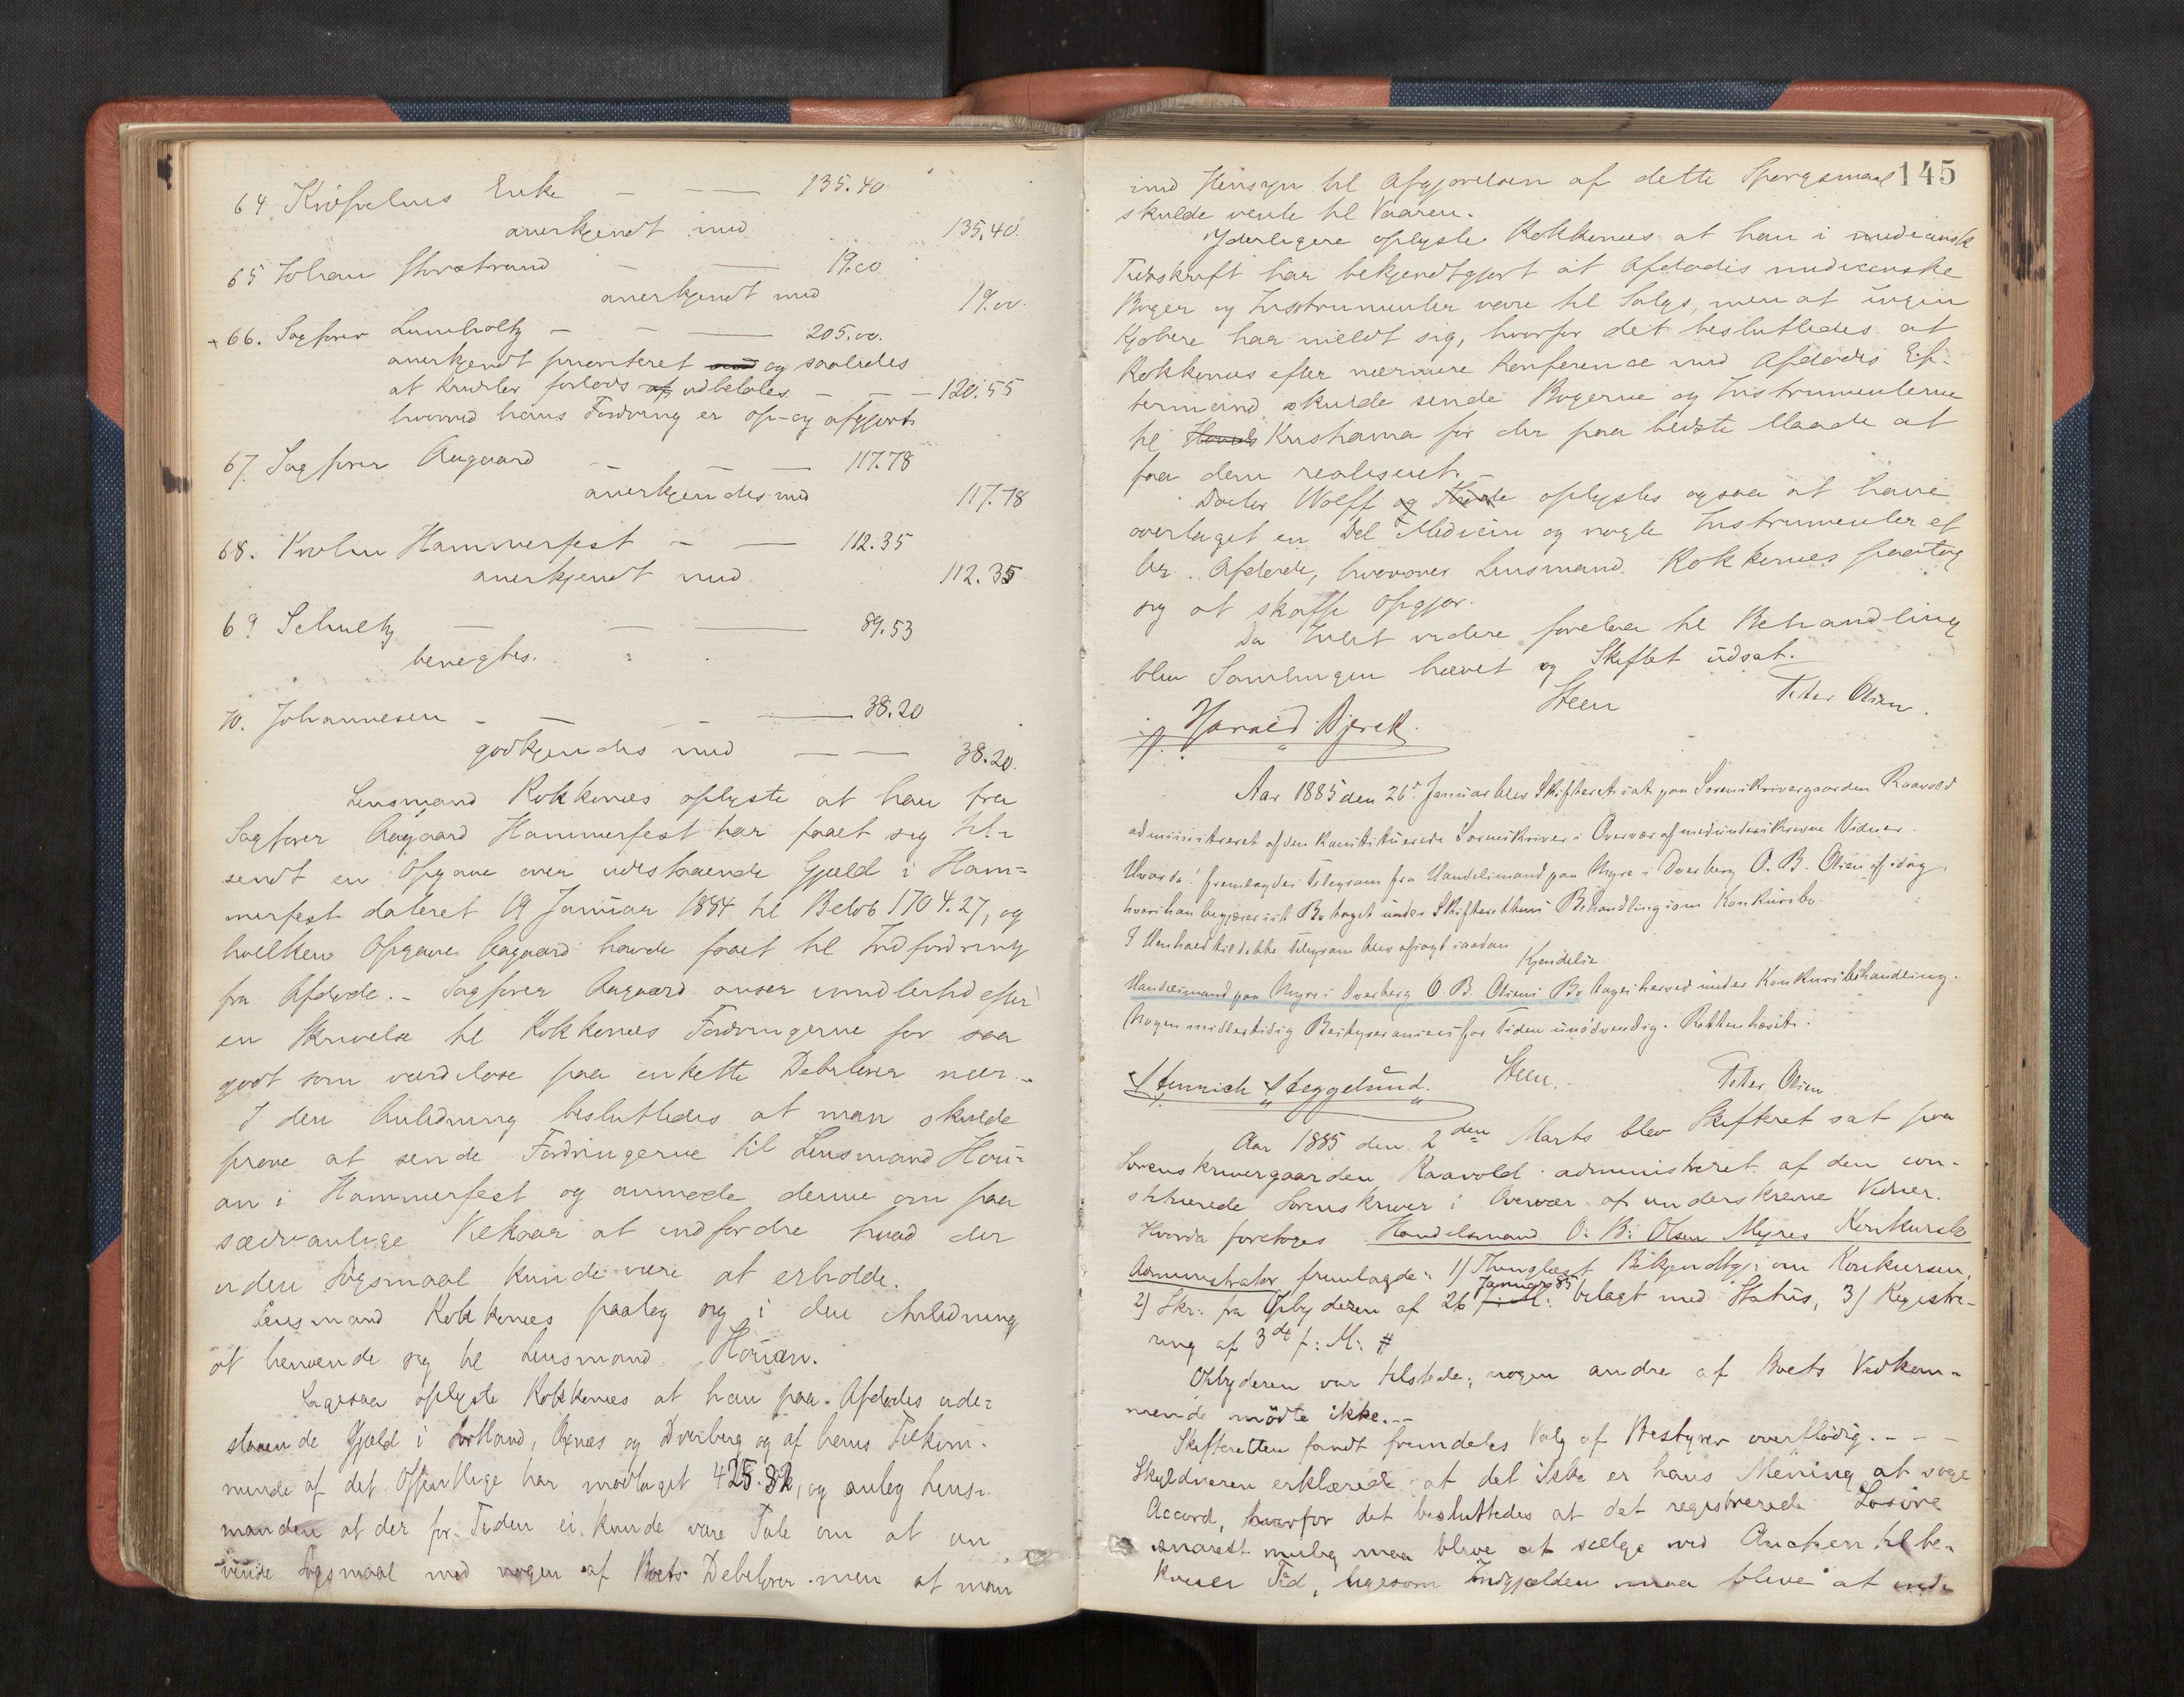 64 Kröpelins Enke — — 135.40
anerkjendt med 135.40.
65 Johan Storstrand — — 19.00
anerkjendt med 19.00
+ 66. Sagfører Lumholtz — — — 205.00.
anerkjendt prioriteret med og saaledes
at Krudtler forlods af udbetales — — — 120.55
hvorved hans Fordring er op- og afgjort.
67. Sagfører Aagaard — — — 117.78
anerkjendes med 117.78
68. Hammerfest — — 112.35
anerkjendt med 112.35
69 Schultz — — — 89.53
benegtes.
70. Johannesen — — — — 38.20
godkjendes med — — 38.20.
Lensmand Kokkenes oplyste at han fra
Sagfører Aagaard Hammerfest har faaet sig til-
sendt en Opgave over udestaaende Gjæld i Ham=
merfest dateret 19 Januar 1884 til Beløb 1704.27, og
hvilken Opgave Aagaard havde faaet til Indfordring
fra Afdøde. - Sagfører Aagaard anser imidlertid efter
en Skrivelse til Kokkenes Fordringerne for saa
godt som værdiløse paa enkelte Debitorer nær. -
I den Anledning besluttedes at man skulde
prøve at sende Fordringerne til Lensmand Hou-
an i Hammerfest og anmode denne om paa
sædvanlige Vilkaar at indfordre hvad der
uden Søgsmaal kunde være at erholde.
Lensmand Kokkenes paatog sig i den Anledning
at henvende sig til Lensmand Houan.
Ligesaa oplyste Kokkenes at han paa Afdødes ude=
staaende Gjæld i Sortland, Øxnes og Dverberg og af hans Tilkom-
mende af det Offentlige har modtaget 425.82, og antog Lens-
manden at der for Tiden ei kunde være Tale om at an
vende Søgsmaal mod nogen af Boets Debitorer men at man
145
med Hensyn til Afgjørelsen af dette Spørgsmaal
skulde vente til Vaaren.
Yderligere oplyste Kokkenes at han i medicinsk
Tidsskrift har bekjendtgjort at Afdødes medicinske
Bøger og Instrumenter være til Salgs, men at ingen
Kjøbere har meldt sig, hvorfor det besluttedes at
Kokkenes efter nærmere Konference med Afdødes Ef-
termand skulde sende Bøgerne og Instrumenterne
til Kristiania for der paa bedste Maade at
faa dem realiseret. -
Doctor Wolff og oplystes ogsaa at have
overtaget en Del Medicin og nogle Instrumenter ef
ter Afdøde, hvorover Lensmand Kokkenes paatog
sig at skaffe Opgjør.
Da Intet videre forelaa til Behandling
blev Samlingen hævet og Skiftet udsat.
Steen Peter Olsen.
Harald Bjerck.
Aar 1885 den 26de Januar blev Skifteret sat paa Sorenskrivergaarden Raavold
administreret af den konstituerede Sorenskriver i Overvær af medunderskrevne Vidner.
Hvorda! fremlagdes Telegram fra Handelsmand paa Myre i Dverberg O. B. Olsen af idag,
hvori han begjærer sit Bo taget under Skifterettens Behandling som Konkursbo.
I Henhold til dette Telegram blev afsagt saadan
Kjendelse.
Handelsmand paa Myre i Dverberg O. B. Olsens Bo tages herved under Konkursbehandling.
Nogen midlertidig Bestyrer ansees for Tiden unødvendig. Retten hævet.
Steen. Peter Olsen.
Henrich Steggelund.
Aar 1885 den 2den Marts blev Skifteret sat paa
Sorenskrivergaarden Raavold administreret af den con-
stituerede Sorenskriver i Overvær af underskrevne Vidner.
Hvorda foretoges Handelsmand O: B: Olsen Myres Konkursbo
Administrator fremlagde: 1) Thinglæst Bekjendtgj: om Konkursen,
2) Skr: fra Opbyderen af 26 Januar 85 f: M: belagt med Status, 3) Registre-
ring af 3de f: M: #
Opbyderen var tilstede; nogen andre af Boets Vedkom-
mende mødte ikke. --
Skifteretten fandt fremdeles Valg af Bestyrer overflødig. - - -
Skyldneren erklærede at det ikke er hans Mening at søge
Accord, hvorfor det besluttedes at det registrerede Løsøre
snarest mulig maa blive at sælge ved Auction til be-
kvem Tid, ligesom Indgjælden maa blive at inde